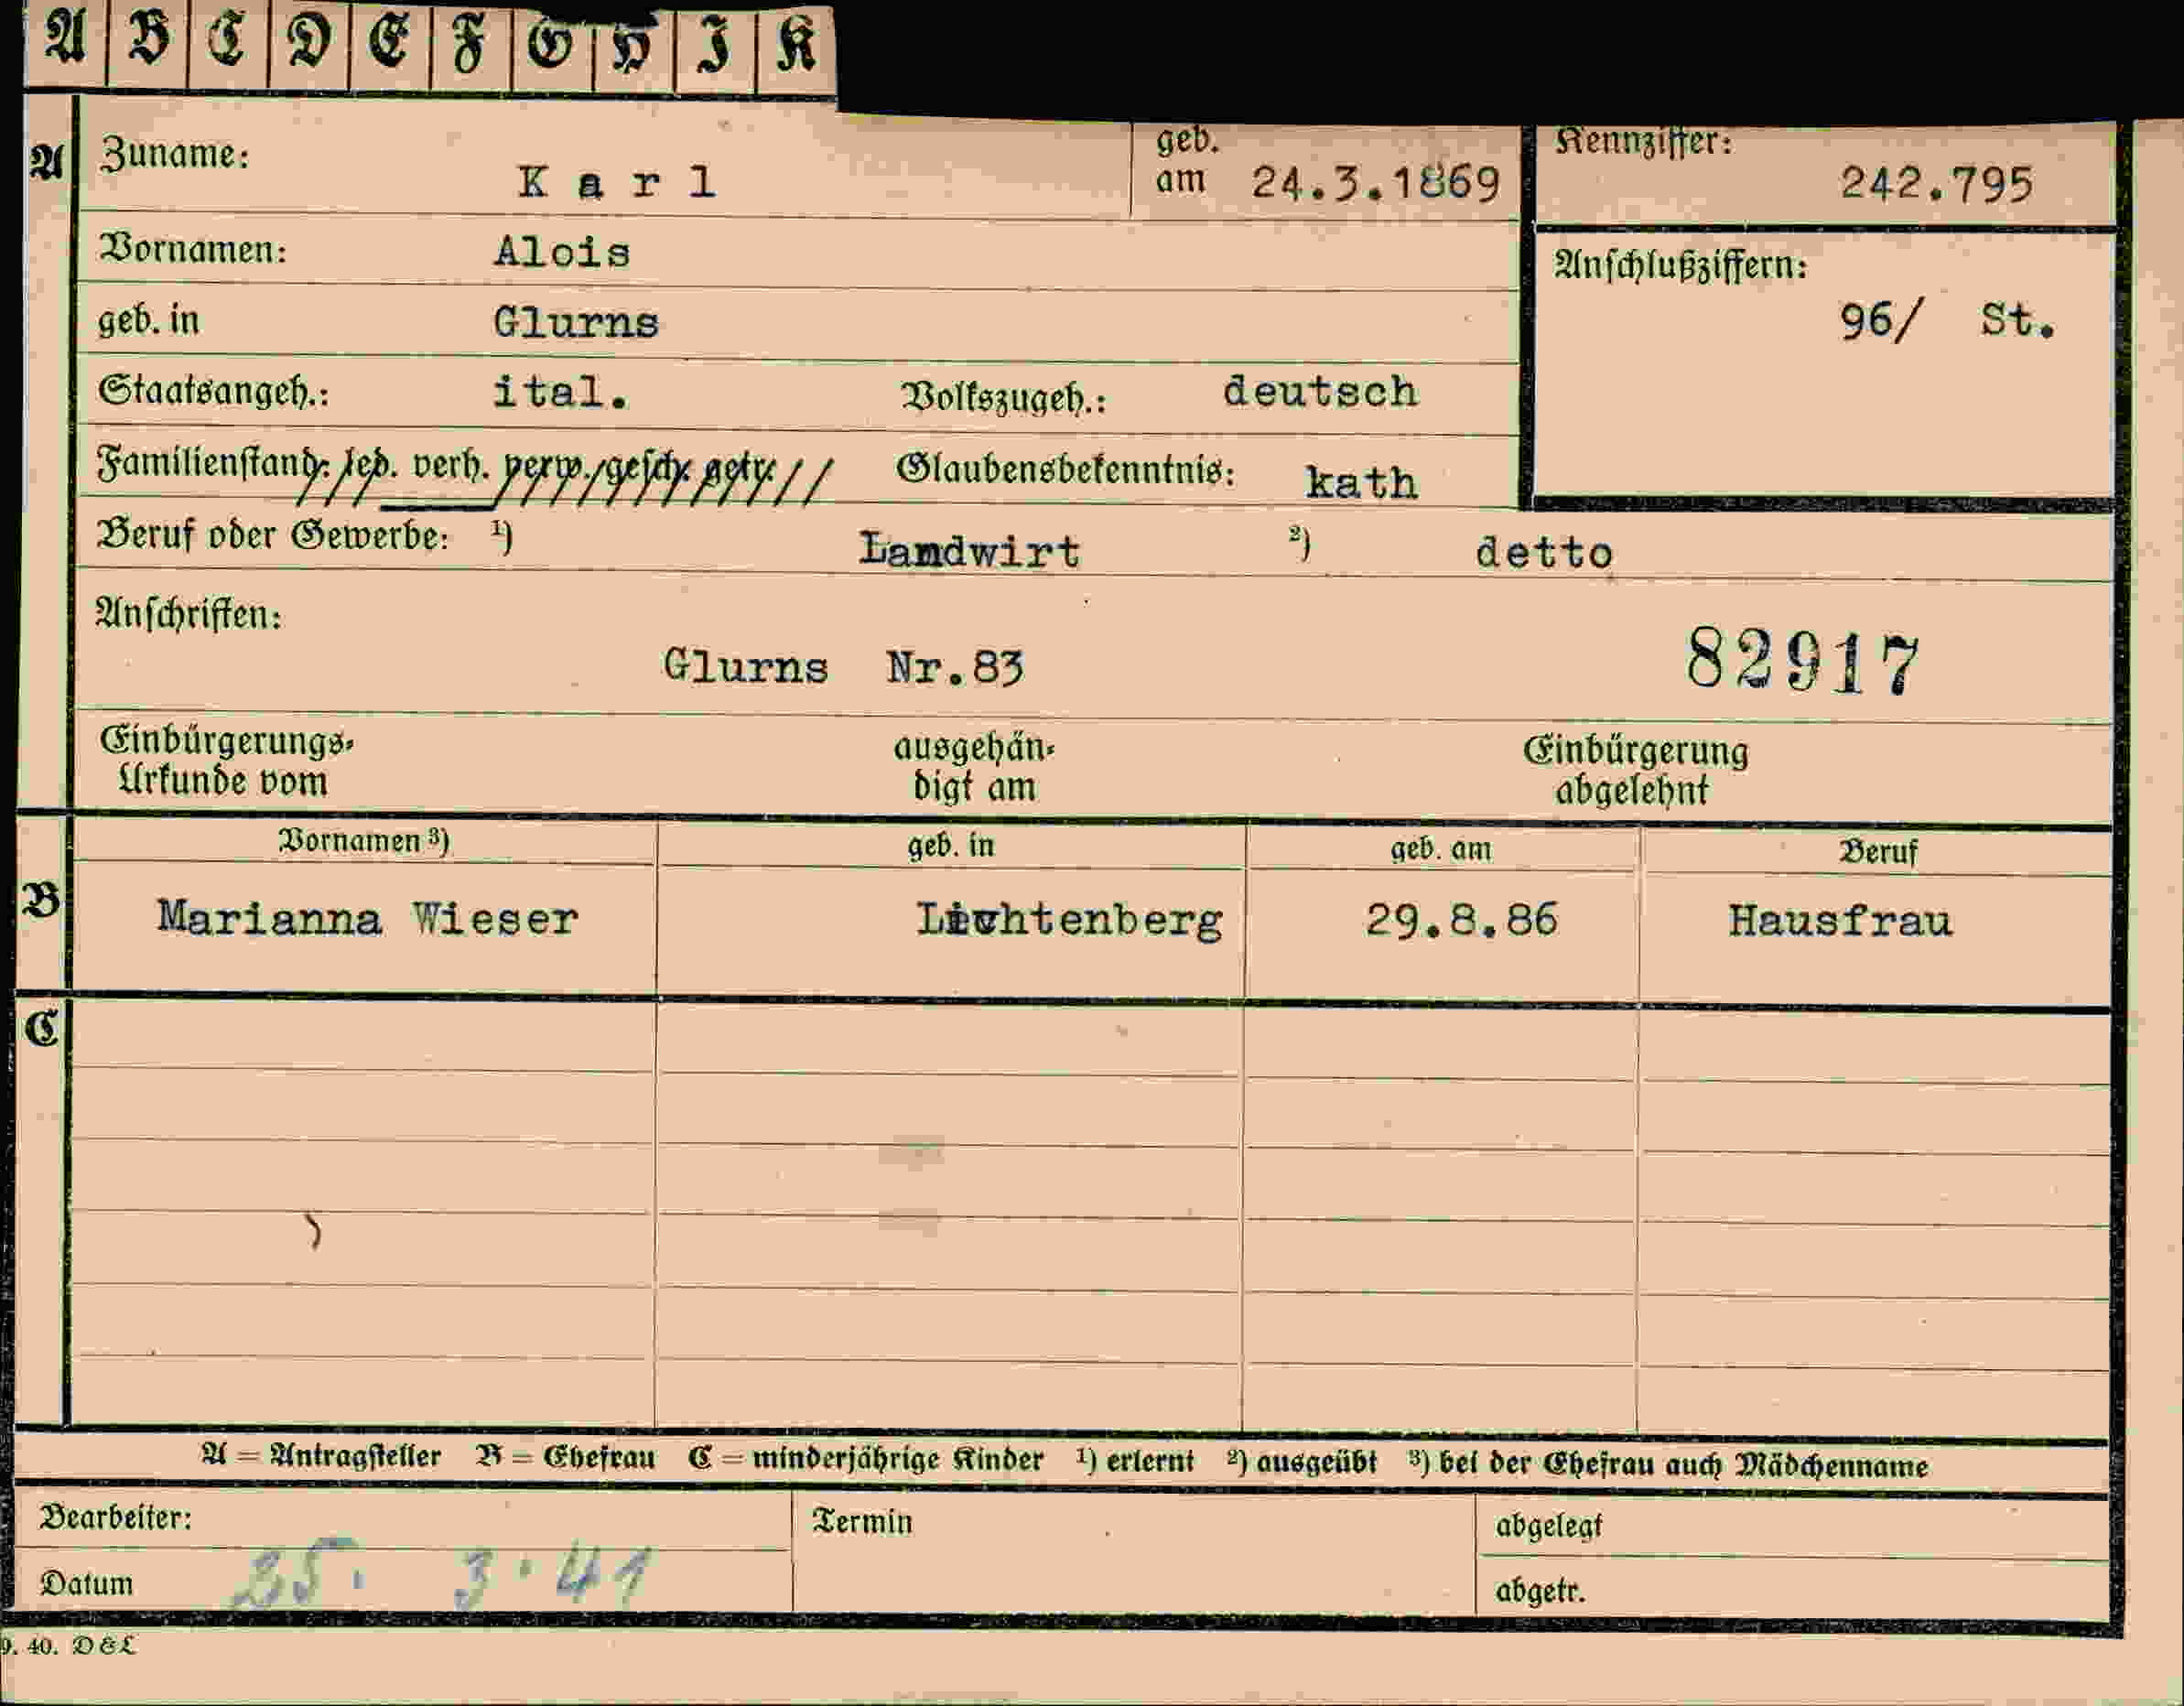 A B C D E F G H I K
A Zuname: Karl geb. am 24.3.1869 Kennziffer: 242.795
Vornamen: Alois Anschlußziffern:
geb. in Glurns 96/ St.
Staatsangeh.: ital. Volkszugeh.: deutsch
Familienstand: led. verh. verw. gesch. getr. Glaubensbekenntnis: kath
Beruf oder Gewerbe: 1) Landwirt 2) detto
Anschriften:
Glurns Nr.83 82917
Einbürgerungs- ausgehän- Einbürgerung
Urkunde vom digt am abgelehnt
Vornamen 3) geb. in geb. am Beruf
B Marianna Wieser Lichtenberg 29.8.86 Hausfrau
C
A = Antragsteller B = Ehefrau C = minderjährige Kinder 1) erlernt 2) ausgeübt 3) bei der Ehefrau auch Mädchenname
Bearbeiter: Termin abgelegt
Datum 25. 3.41 abgetr.
9. 40. D&L